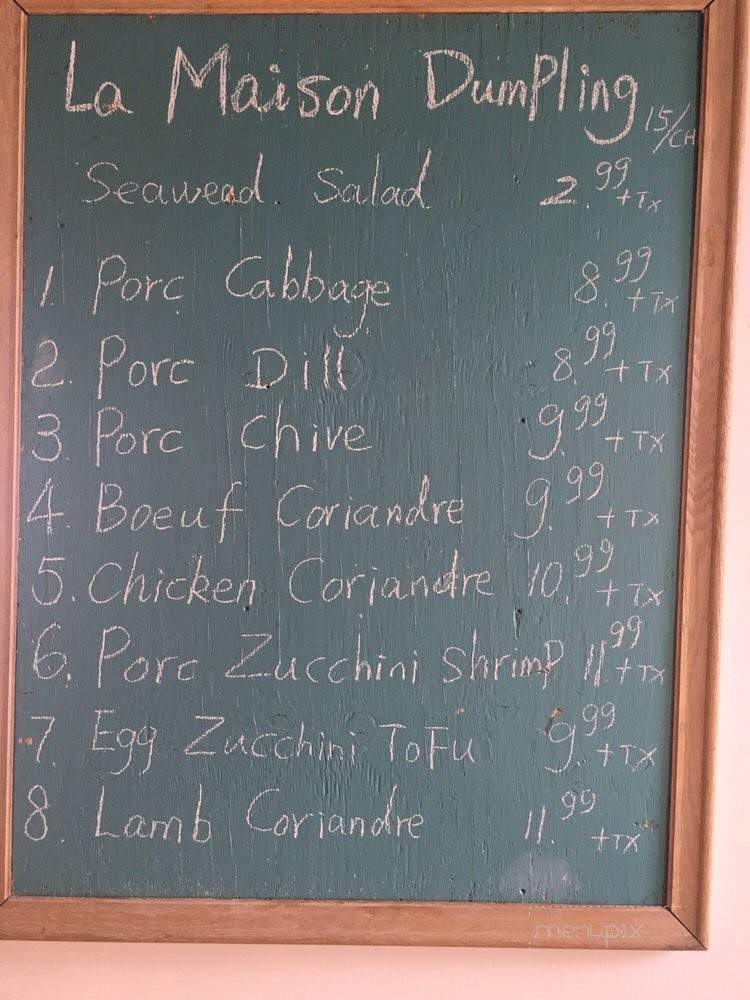 La Maison Dumpling 15/CH
Seawead Salad 2.99 +Tx
1. Porc Cabbage 8.99 +Tx
2. Porc Dill 8.99 +Tx
3. Porc Chive 9.99 +Tx
4. Boeuf Coriandre 9.99 +Tx
5. Chicken Coriandre 10.99 +Tx
6. Porc Zucchini Shrimp 11.99 +Tx
7. Egg Zucchini ToFu 9.99 +Tx
8. Lamb Coriandre 11.99 +Tx
menupix